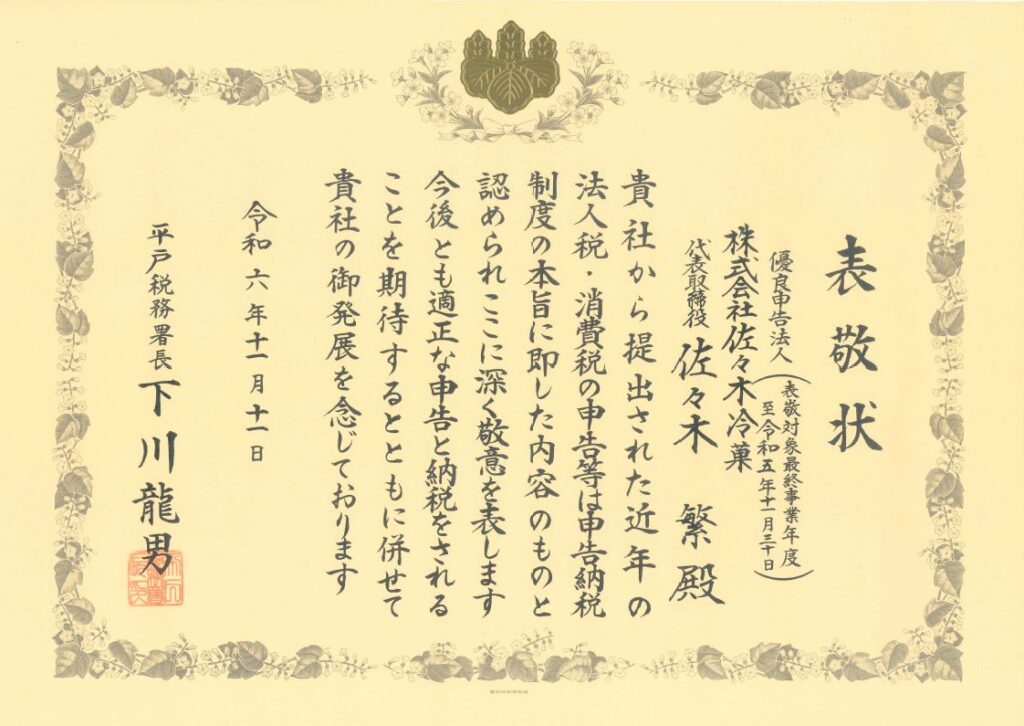 表敬状
優良申告法人(表敬対象最終事業年度
至令和五年十一月三十日)
株式会社佐々木冷菓
代表取締役 佐々木 繁 殿
貴社から提出された近年の
法人税・消費税の申告等は申告納税
制度の本旨に即した内容のものと
認められここに深く敬意を表します
今後とも適正な申告と納税をされる
ことを期待するとともに併せて
貴社の御発展を念じております
令和六年十一月十一日
平戸税務署長 下川龍男